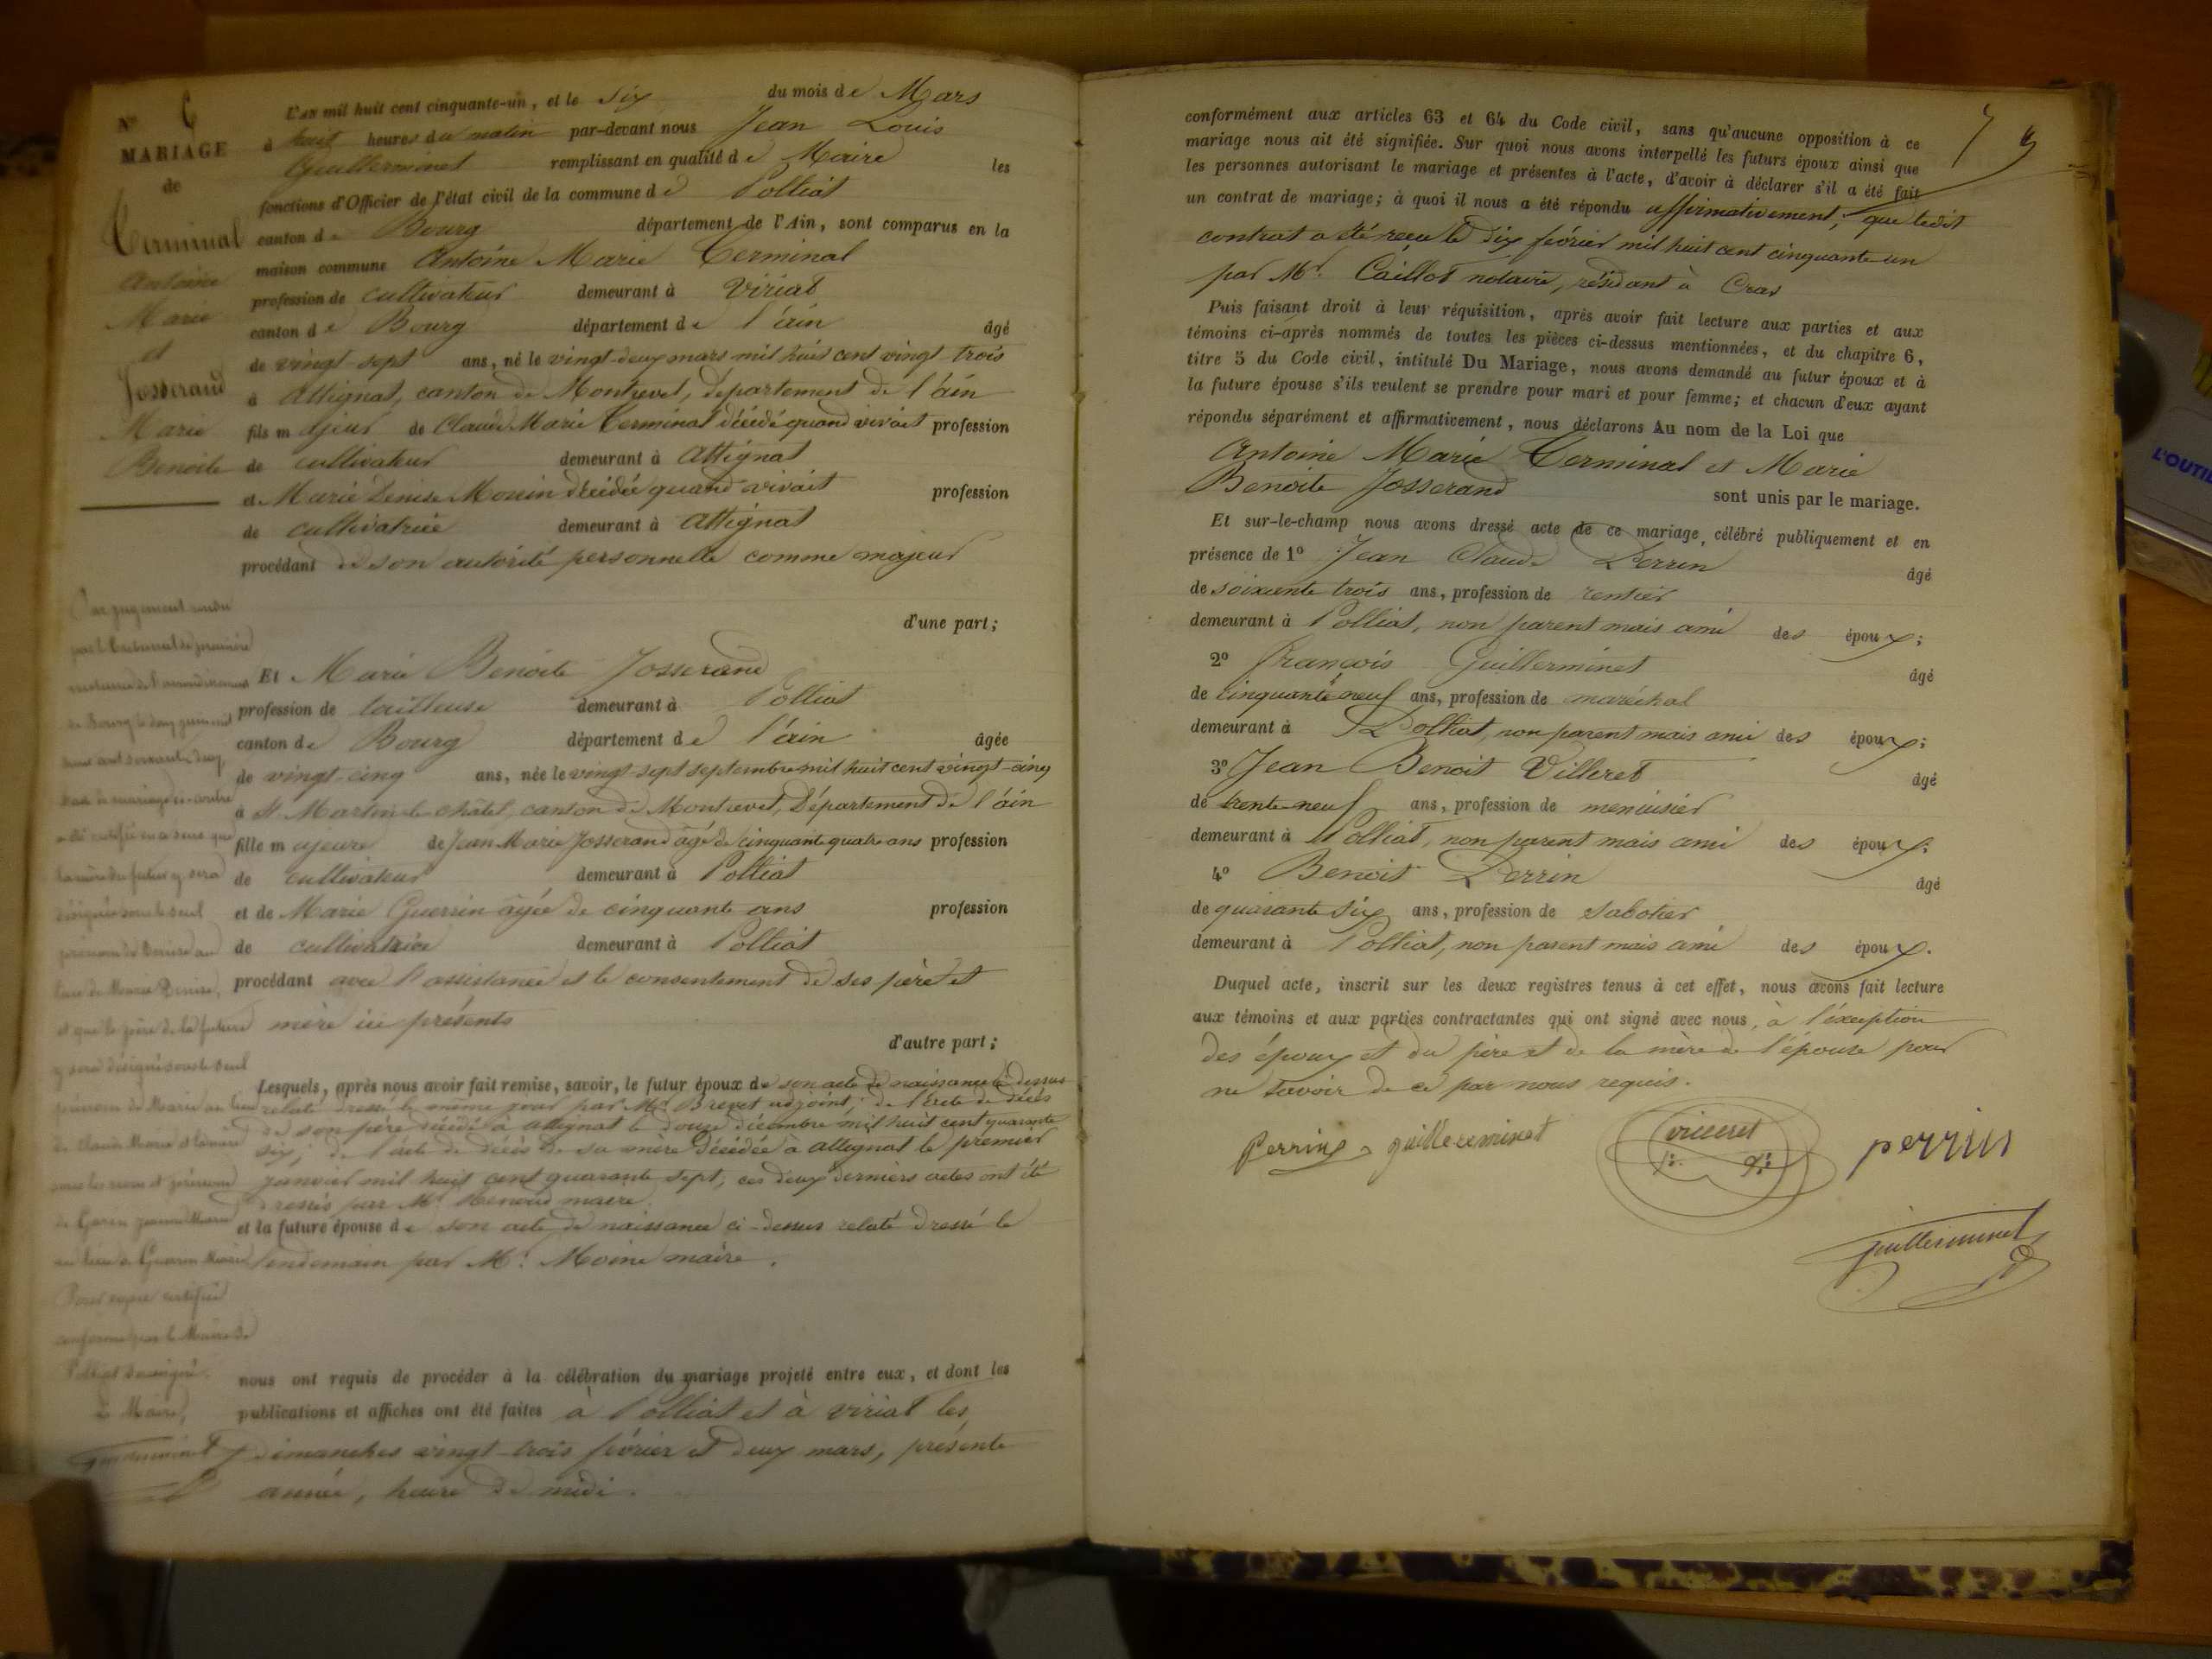 N° 6
MARIAGE
de
Terminal
Antoine
Marie
et
Josserand
Marie
Benoite
L'an mil huit cent cinquante-un, et le six du mois de Mars
à huit heures du matin par-devant nous Jean Louis
Guillerminet remplissant en qualité de Maire les
fonctions d'Officier de l'état civil de la commune de Polliat
canton de Bourg département de l'Ain, sont comparus en la
maison commune Antoine Marie Terminal
profession de cultivateur demeurant à Viriat
canton de Bourg département de l'ain âgé
de vingt-sept ans, né le vingt-deux mars mil huit cent vingt-trois
à Attignat, canton de Montrevel, département de l'ain
fils majeur de Claude Marie Terminal décédé quand vivait profession
de cultivateur demeurant à Attignat
et Marie Denise décédée quand vivait profession
de cultivatrice demeurant à Attignat
procédant de son autorité personnelle comme majeur
d'une part;
Et Marie Benoite Josserand
profession de tailleuse demeurant à Polliat
canton de Bourg département de l'ain âgée
de vingt-cinq ans, née le vingt-sept septembre mil huit cent vingt-cinq
à St Martin-le-châtel, canton de Montrevel, Département de l'ain
fille majeure de Jean Marie Josserand âgé de cinquante quatre ans profession
de cultivateur demeurant à Polliat
et de Marie Guerrin âgée de cinquante ans profession
de cultivatrice demeurant à Polliat
procédant avec l'assistance et le consentement de ses père et
mère ici présents
d'autre part;
Lesquels, après nous avoir fait remise, savoir, le futur époux de son acte de naissance ci-dessus
relaté dressé le même jour par Mr Brevet adjoint; de l'acte de décès
de son père décédé à attignat le douze décembre mil huit cent quarante
six; de l'acte de décès de sa mère décédée à attignat le premier
janvier mil huit cent quarante sept, ces deux derniers actes ont été
dressés par Mr maire.
et la future épouse de son acte de naissance ci-dessus relaté dressé le
lendemain par Mr. Moine maire.
nous ont requis de procéder à la célébration du mariage projeté entre eux, et dont les
publications et affiches ont été faites à Polliat et à viriat les
dimanches vingt-trois février et deux mars, présente
année, heure de midi.
Par jugement rendu
par le tribunal de première
instance de l'arrondissement
de Bourg le
a été rectifié en ce sens que
la mère du futur y sera
désignée sous le seul
prénom de Denise au
lieu de Marie Denise,
et que le père de la future
y sera désigné sous le seul
prénom de Marie au lieu
de Claude Marie et la mère
sous les noms et prénoms
de Marie
au lieu de Guerrin Marie
Pour copie certifiée
conforme par le Maire de
Polliat soussigné.
Le Maire,
Guillerminet
conformément aux articles 63 et 64 du Code civil, sans qu'aucune opposition à ce
mariage nous ait été signifiée. Sur quoi nous avons interpellé les futurs époux ainsi que
les personnes autorisant le mariage et présentes à l'acte, d'avoir à déclarer s'il a été fait
un contrat de mariage; à quoi il nous a été répondu affirmativement, que ledit
contrat a été reçu le dix février mil huit cent cinquante-un
par Mr. Caillot notaire, résidant à Cras
Puis faisant droit à leur réquisition, après avoir fait lecture aux parties et aux
témoins ci-après nommés de toutes les pièces ci-dessus mentionnées, et du chapitre 6,
titre 5 du Code civil, intitulé Du Mariage, nous avons demandé au futur époux et à
la future épouse s'ils veulent se prendre pour mari et pour femme; et chacun d'eux ayant
répondu séparément et affirmativement, nous déclarons Au nom de la Loi que
Antoine Marie Terminal et Marie
Benoite Josserand sont unis par le mariage.
Et sur-le-champ nous avons dressé acte de ce mariage, célébré publiquement et en
présence de 1° Jean Claude Perrin âgé
de soixante trois ans, profession de rentier
demeurant à Polliat, non parent mais ami des époux;
2° françois Guillerminet âgé
de cinquante neuf ans, profession de maréchal
demeurant à Polliat, non parent mais ami des époux;
3° Jean Benoit Villeret âgé
de trente-neuf ans, profession de menuisier
demeurant à Polliat, non parent mais ami des époux;
4° Benoit Perrin âgé
de quarante six ans, profession de sabotier
demeurant à Polliat, non parent mais ami des époux.
Duquel acte, inscrit sur les deux registres tenus à cet effet, nous avons fait lecture
aux témoins et aux parties contractantes qui ont signé avec nous, à l'exception
des époux et du père et de la mère de l'épouse pour
ne savoir de ce par nous requis.
Perrin guillereminet villeret perrin
Guillerminet
L'OUTIL